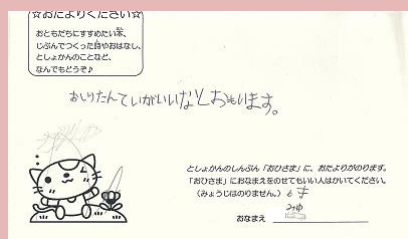 ☆おたよりください☆
おともだちにすすめたい本、
じぶんでつくった詩やおはなし、
としょかんのことなど、
なんでもどうぞ♪
おしりたんていがいいなとおもいます。
としょかんのしんぶん「おひさま」に、おたよりがのります。
「おひさま」におなまえをのせてもいい人はかいてください。
(みょうじはのりません。)
おなまえ